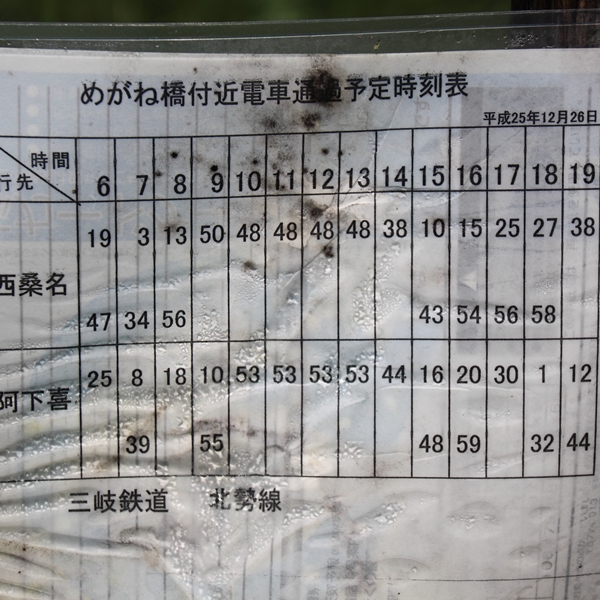 めがね橋付近電車通過予定時刻表
平成25年12月26日
時間 6 7 8 9 10 11 12 13 14 15 16 17 18 19
行先
19 3 13 50 48 48 48 48 38 10 15 25 27 38
西桑名
47 34 56 43 54 56 58
25 8 18 10 53 53 53 53 44 16 20 30 1 12
阿下喜
39 55 48 59 32 44
三岐鉄道 北勢線